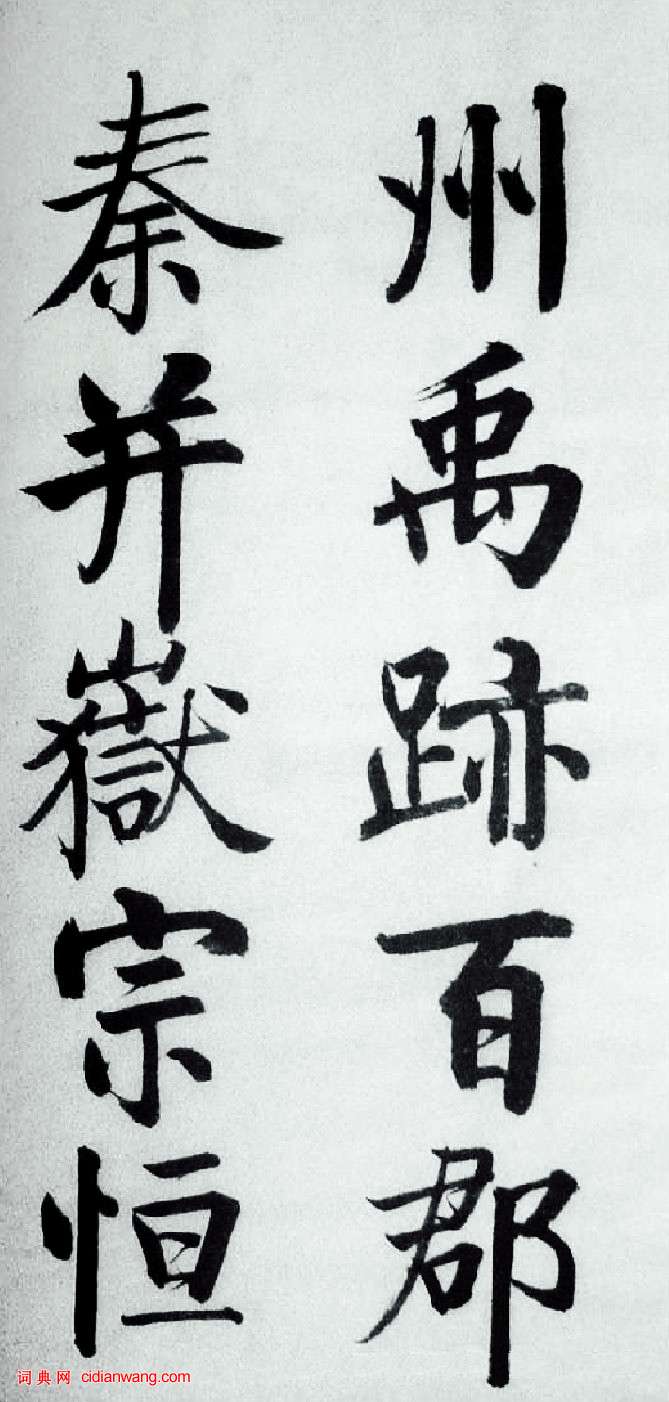 州禹跡百郡
秦并嶽宗恒
词典网 cidianwang.com